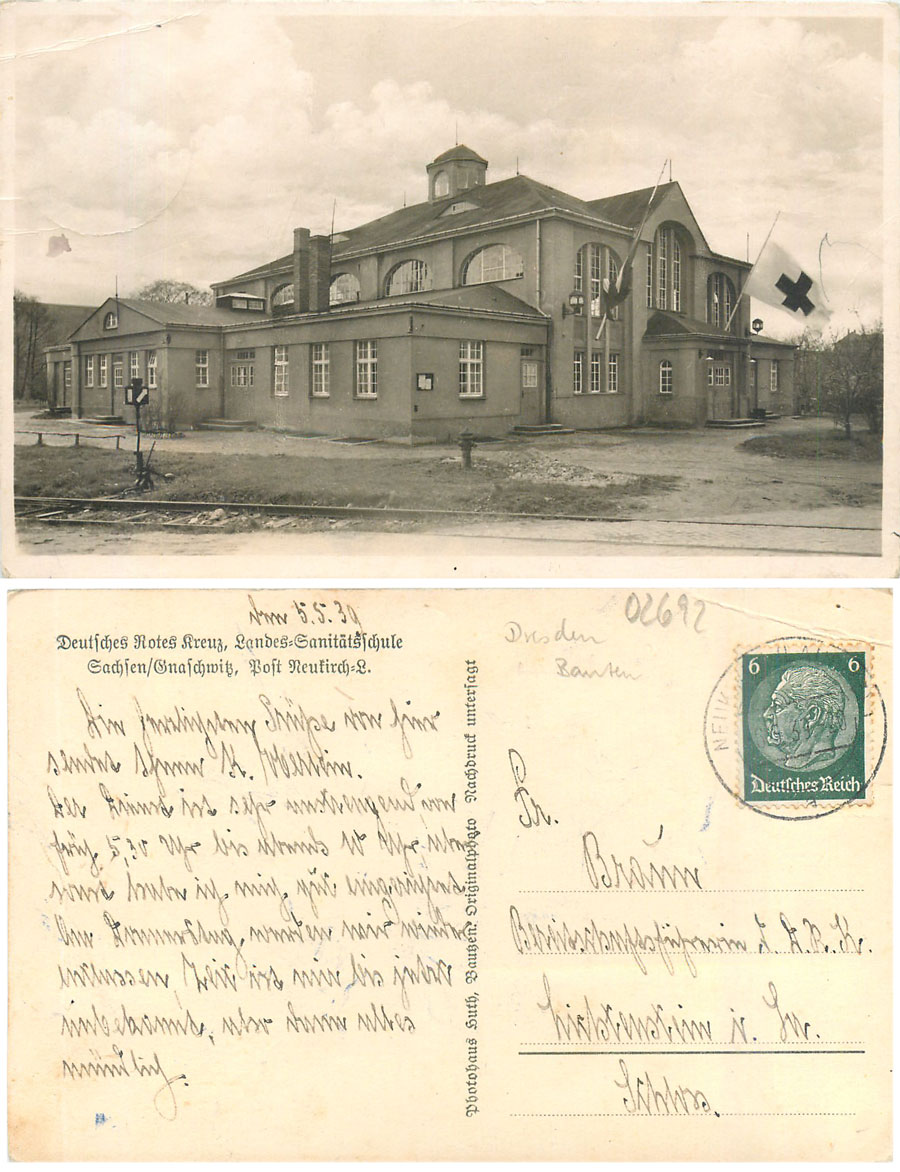 den 5.5.39
Deutsches Rotes Kreuz, Landes-Sanitätsschule
Sachsen/Gnaschwitz, Post Neukirch-L.
Die herzlichsten Grüße von hier
sendet Ihnen K.
Der Dienst ist sehr anstrengend, von
früh 5,30 Uhr bis abends 10 Uhr, aber
sonst habe ich mich gut eingerichtet
Am Donnerstag werden wir wieder
entlassen, Zeit ist nun bis jetzt
unbekannt, aber dann alles
mündlich.
Photohaus Huth, Bautzen. Originalphoto Nachdruck untersagt
02692
Dresden
Bauten
6 6
Deutsches Reich
NEUK
Fr.
Braun
Bereitschaftsführerin d. D.R.K.
Lichtenstein i. Sa.
Schloss.